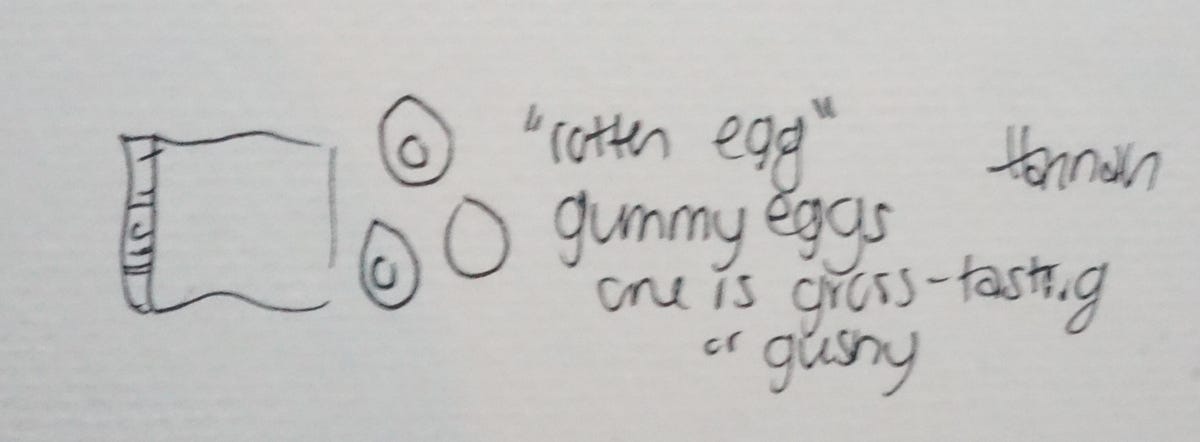 "rotten egg"
Hannah
gummy eggs
one is gross-tasting
or gushy